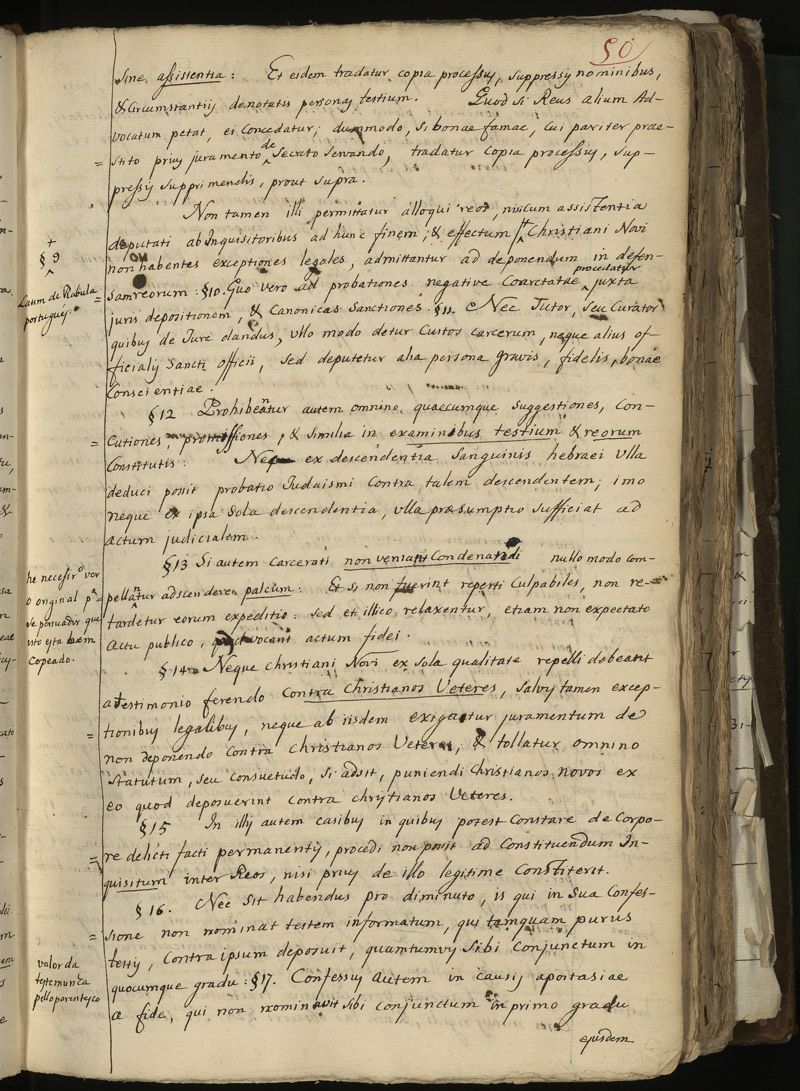 50
sine assistentia: Et eidem tradatur copia processus, suppressis nominibus,
& circumstantiis denotatis personas testium. Quod si Reus alium Ad-
vocatum petat, ei concedatur; dummodo, si bonae famae, cui pariter prae-
= stito prius juramento de secreto servando, tradatur copia processus, sup-
pressis supprimendis, prout supra.
Non tamen illi permittatur alloqui reos, nisi cum assistentia
deputati ab Inquisitoribus ad hunc finem, & effectum Christiani Novi
+
§ 9
non habentes exceptiones legales, admittantur ad deponendum in defen-
sam reorum: §10. Quo vero ad probationes negative coarctatae procedatur juxta
Latim de Rabula
portuguez.
juris depositionem, & Canonicas Sanctiones. §11. Nec Tutor, seu Curator
quibus de Jure dandus, ullo modo detur Custos carcerum, neque alius of-
ficialis Sancti officii, sed deputetur alia persona gravis, fidelis, bonae
Conscientiae.
§12 Prohibeantur autem omnino quaecumque suggestiones, con-
= cutiones, promissiones, & similia in examinibus testium & reorum
Constitutis: Neque ex descendentia sanguinis hebraei ulla
deduci possit probatio Judaismi contra talem descendentem; imo
neque ex ipsa sola descendentia, ulla praesumptio sufficiat ad
actum judicialem.
§13 Si autem carcerati non veniant Condenatidi nullo modo com-
he necessr.º ver
o original p.ª
se persuadir que
isto esta bem
Copeado.
pellantur adscendere palcum: Et si non fuerint reperti culpabiles, non re-
tardetur eorum expeditio: sed et illico relaxentur, etiam non expectato
actu publico, quem vocant actum fidei.
§14 Neque christiani Novi ex sola qualitate repelli debeant
a testimonio ferendo contra Christianos Veteres, salvis tamen excep-
= tionibus legalibus, neque ab iisdem exigatur juramentum de
non deponendo contra christianos Veteres, & tollatur omnino
statutum, seu consuetudo, si adsit, puniendi Christianos novos ex
eo quod deposuerint contra christianos Veteres.
§15 In illis autem casibus in quibus potest constare de Corpo-
= re delicti facti permanentis, procedi non possit ad constituendum In-
quisitum inter Reos, nisi prius de illo legitime constiterit.
§16. Nec sit habendus pro diminuto, is qui in sua Confes-
= sione non nominat testem informatum, qui tamquam purus
testis, contra ipsum deposuit, quamtumvis sibi conjunctum in
valor da
testemunha
pello parentesco
quocumque gradu: §17. Confessus autem in causis apostasiae
a fide, qui non nominavit sibi conjunctum in primo gradu
ejusdem